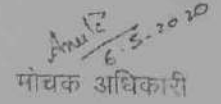 6.5.2020
मोचक अधिकारी